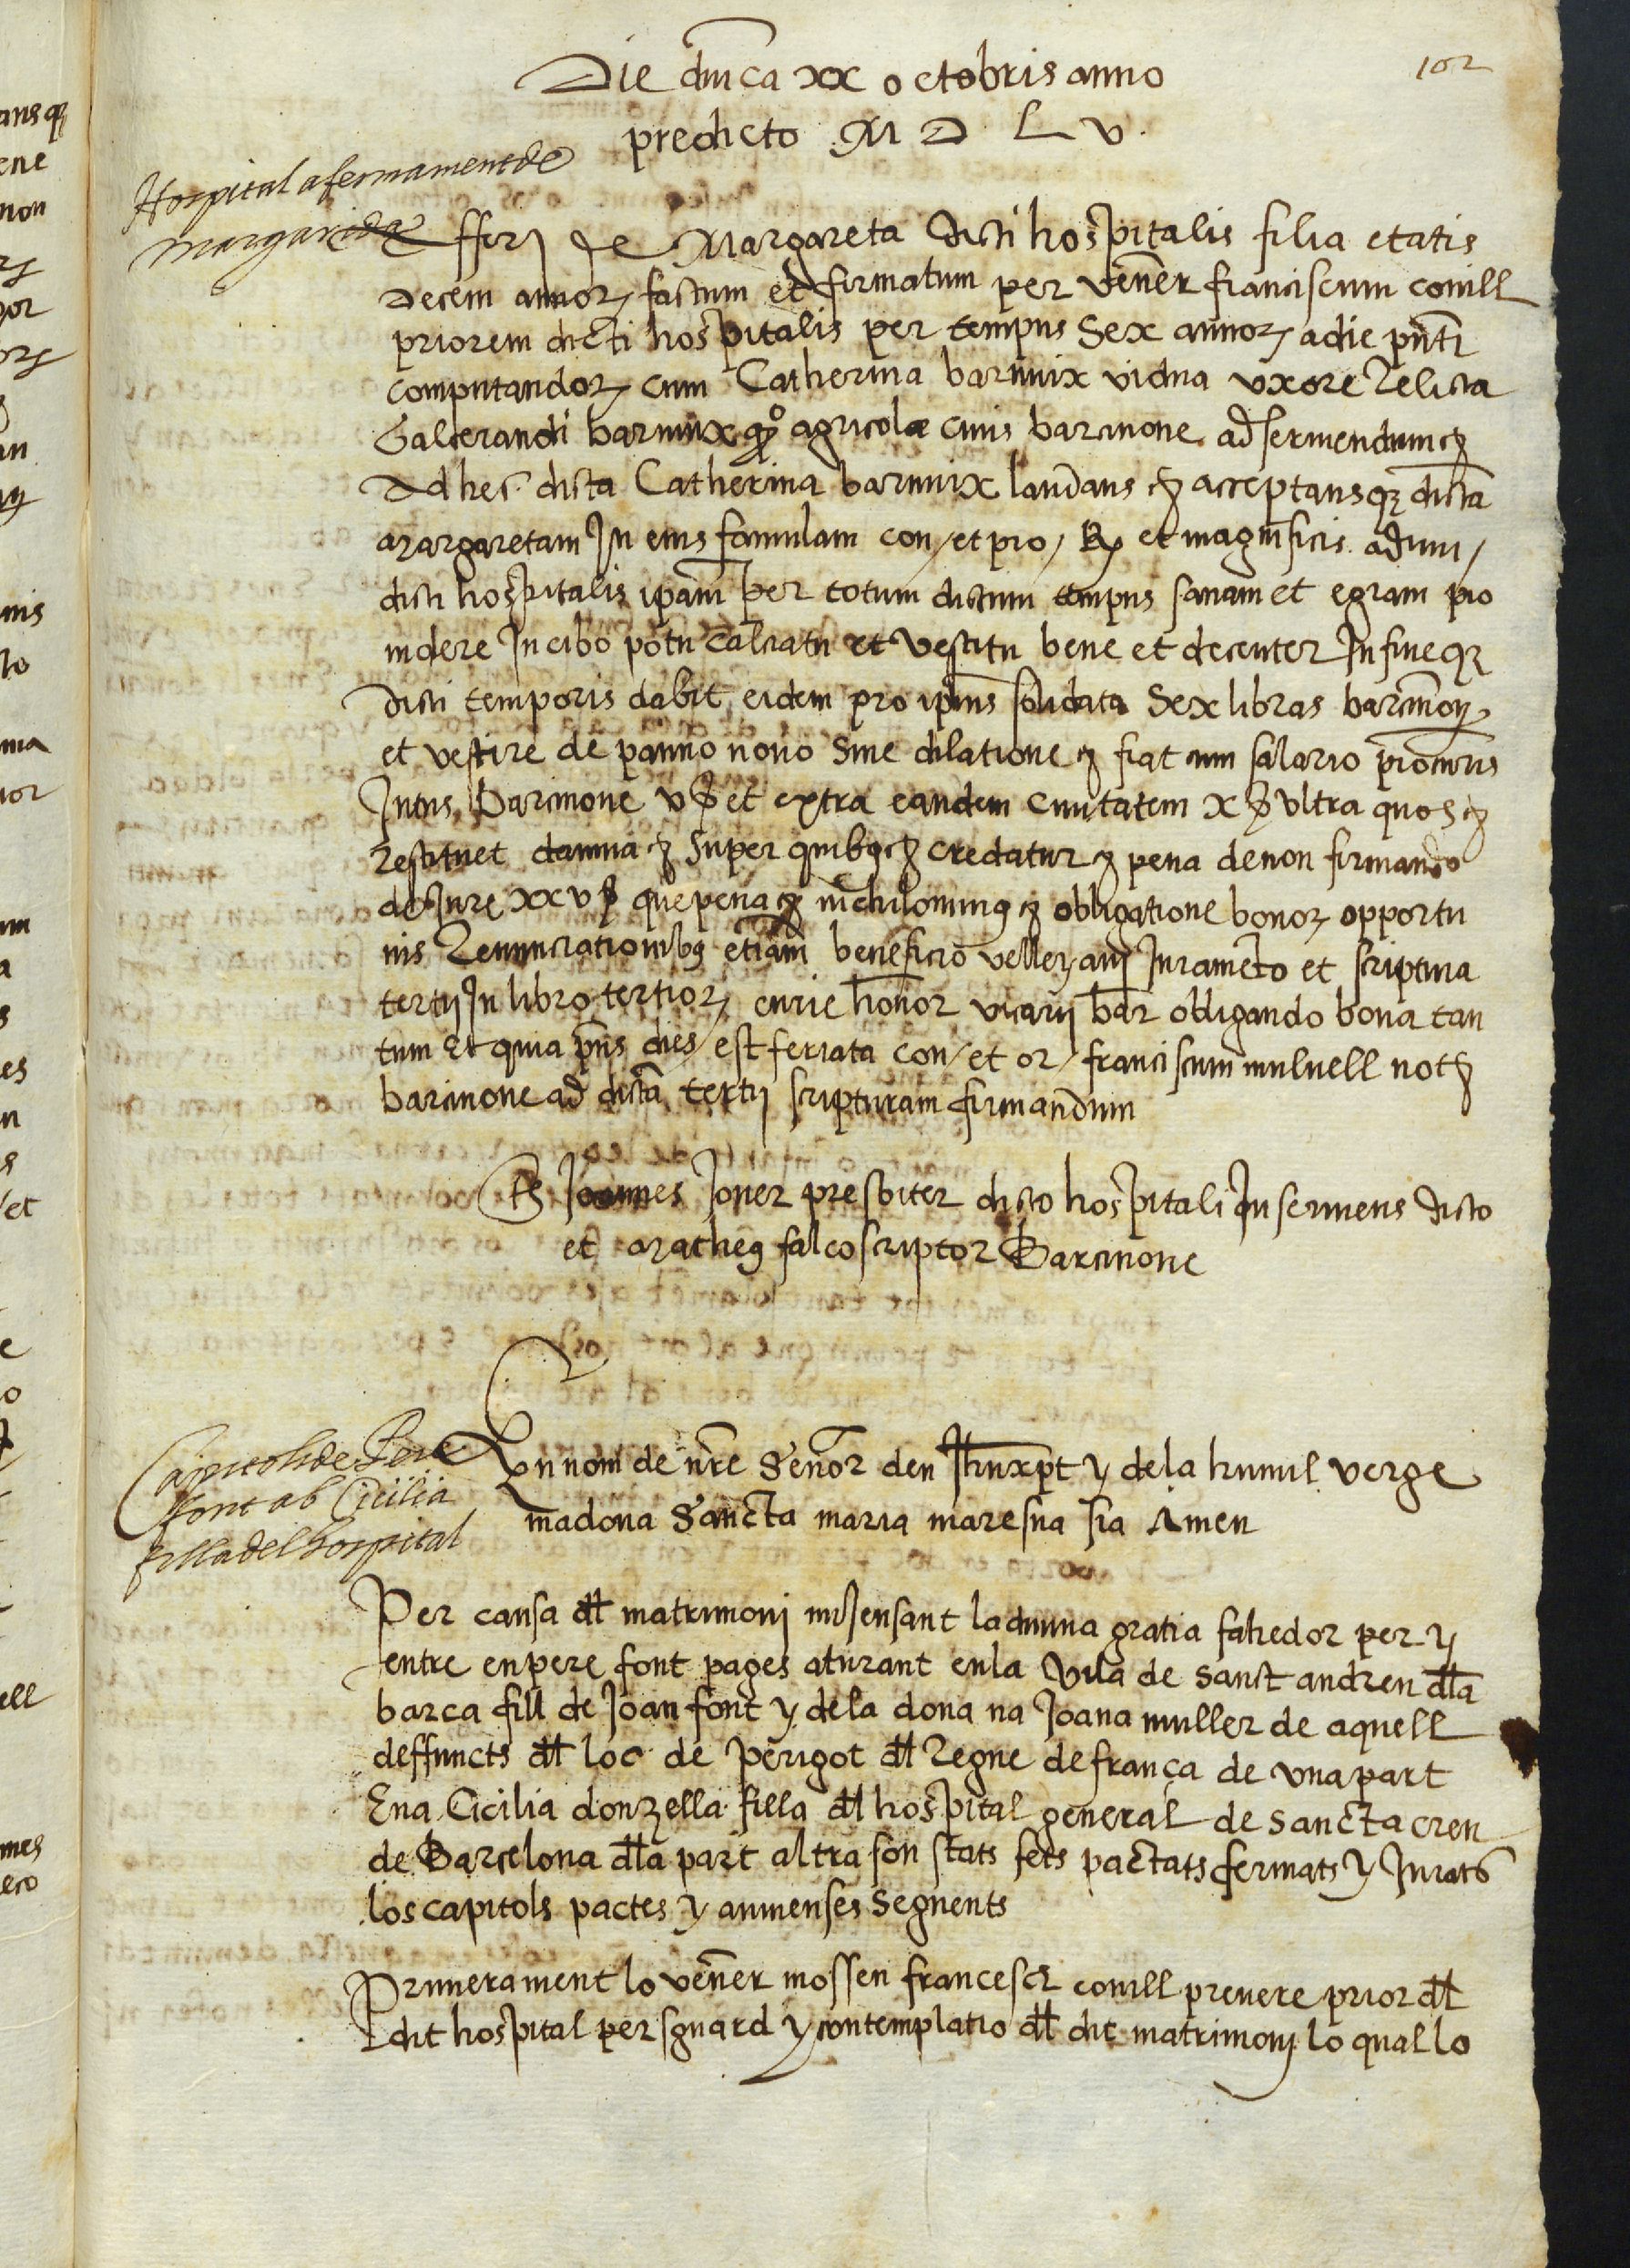 102
Die dnica xx octobris anno
predicto M D L v.
Hospital afermament de
margarida
fferm de Margareta dicti hospitalis filia etatis
decem annor, factum et firmatum per vener franciscum conill
priorem dicti hospitalis per tempus sex annor, a die pnti
computandor, cum Catherina barnuix vidua uxore relicta
Galcerandi barnuix qo agricole civis barcinone ad serviendum
Ad hec dicta Catherina barnuix laudans acceptansq dicta
Margaretam In eius famulam con / et pro / et magnificis admi /
dicti hospitalis ipam per totum dictum tempus sanam et egram pro
videre In cibo potu calciatu et vestitu bene et decenter In fineq
dicti temporis dabit eidem pro ipius solidata sex libras barcinon
et vestire de panno novo sine dilatione fiat cum salario procuris
Intus Barcinone v et extra eandem civitatem x ultra quos
restituet damna super quibus credatur pena de non firmando
de Jure xxv que pena nichilominus obligatione bonor, opportu
nis renunciationibus etiam beneficio velley Juramento et scriptura
tertii In libro tertior, curie honor vicarii bar obligando bona tan
tum Et quia pns dies est feriata con / et or / franciscum mulnell not
barcinone ad dicta tertii scripturam firmandum
Ts Joannes Joner presbiter dicto hospitali In serviens dicto
et Matheus falco scriptor Barcinone
Capitols de Pere
font ab Cicilia
filla del hospital
En nom de nre Senor deu Jhuxpt y de la humil verge
madona Sancta maria mare sua sia Amen
Per causa dl matrimoni mijensant la divina gratia fahedor per y
entre en pere font pages aturant en la vila de sanct andreu dla
barca fill de Joan font y de la dona na Joana muller de aquell
deffuncts dl loc de perigot dl regne de frança de una part
E na Cicilia donzella filla dl hospital general de sancta creu
de Barcelona dla part altra son stats fets pactats fermats y Jurats
los capitols pactes y avinenses seguents
Primerament lo vener mossen francesch conill prevere prior dl
dit hospital per sguard y contemplatio dl dit matrimonj lo qual lo